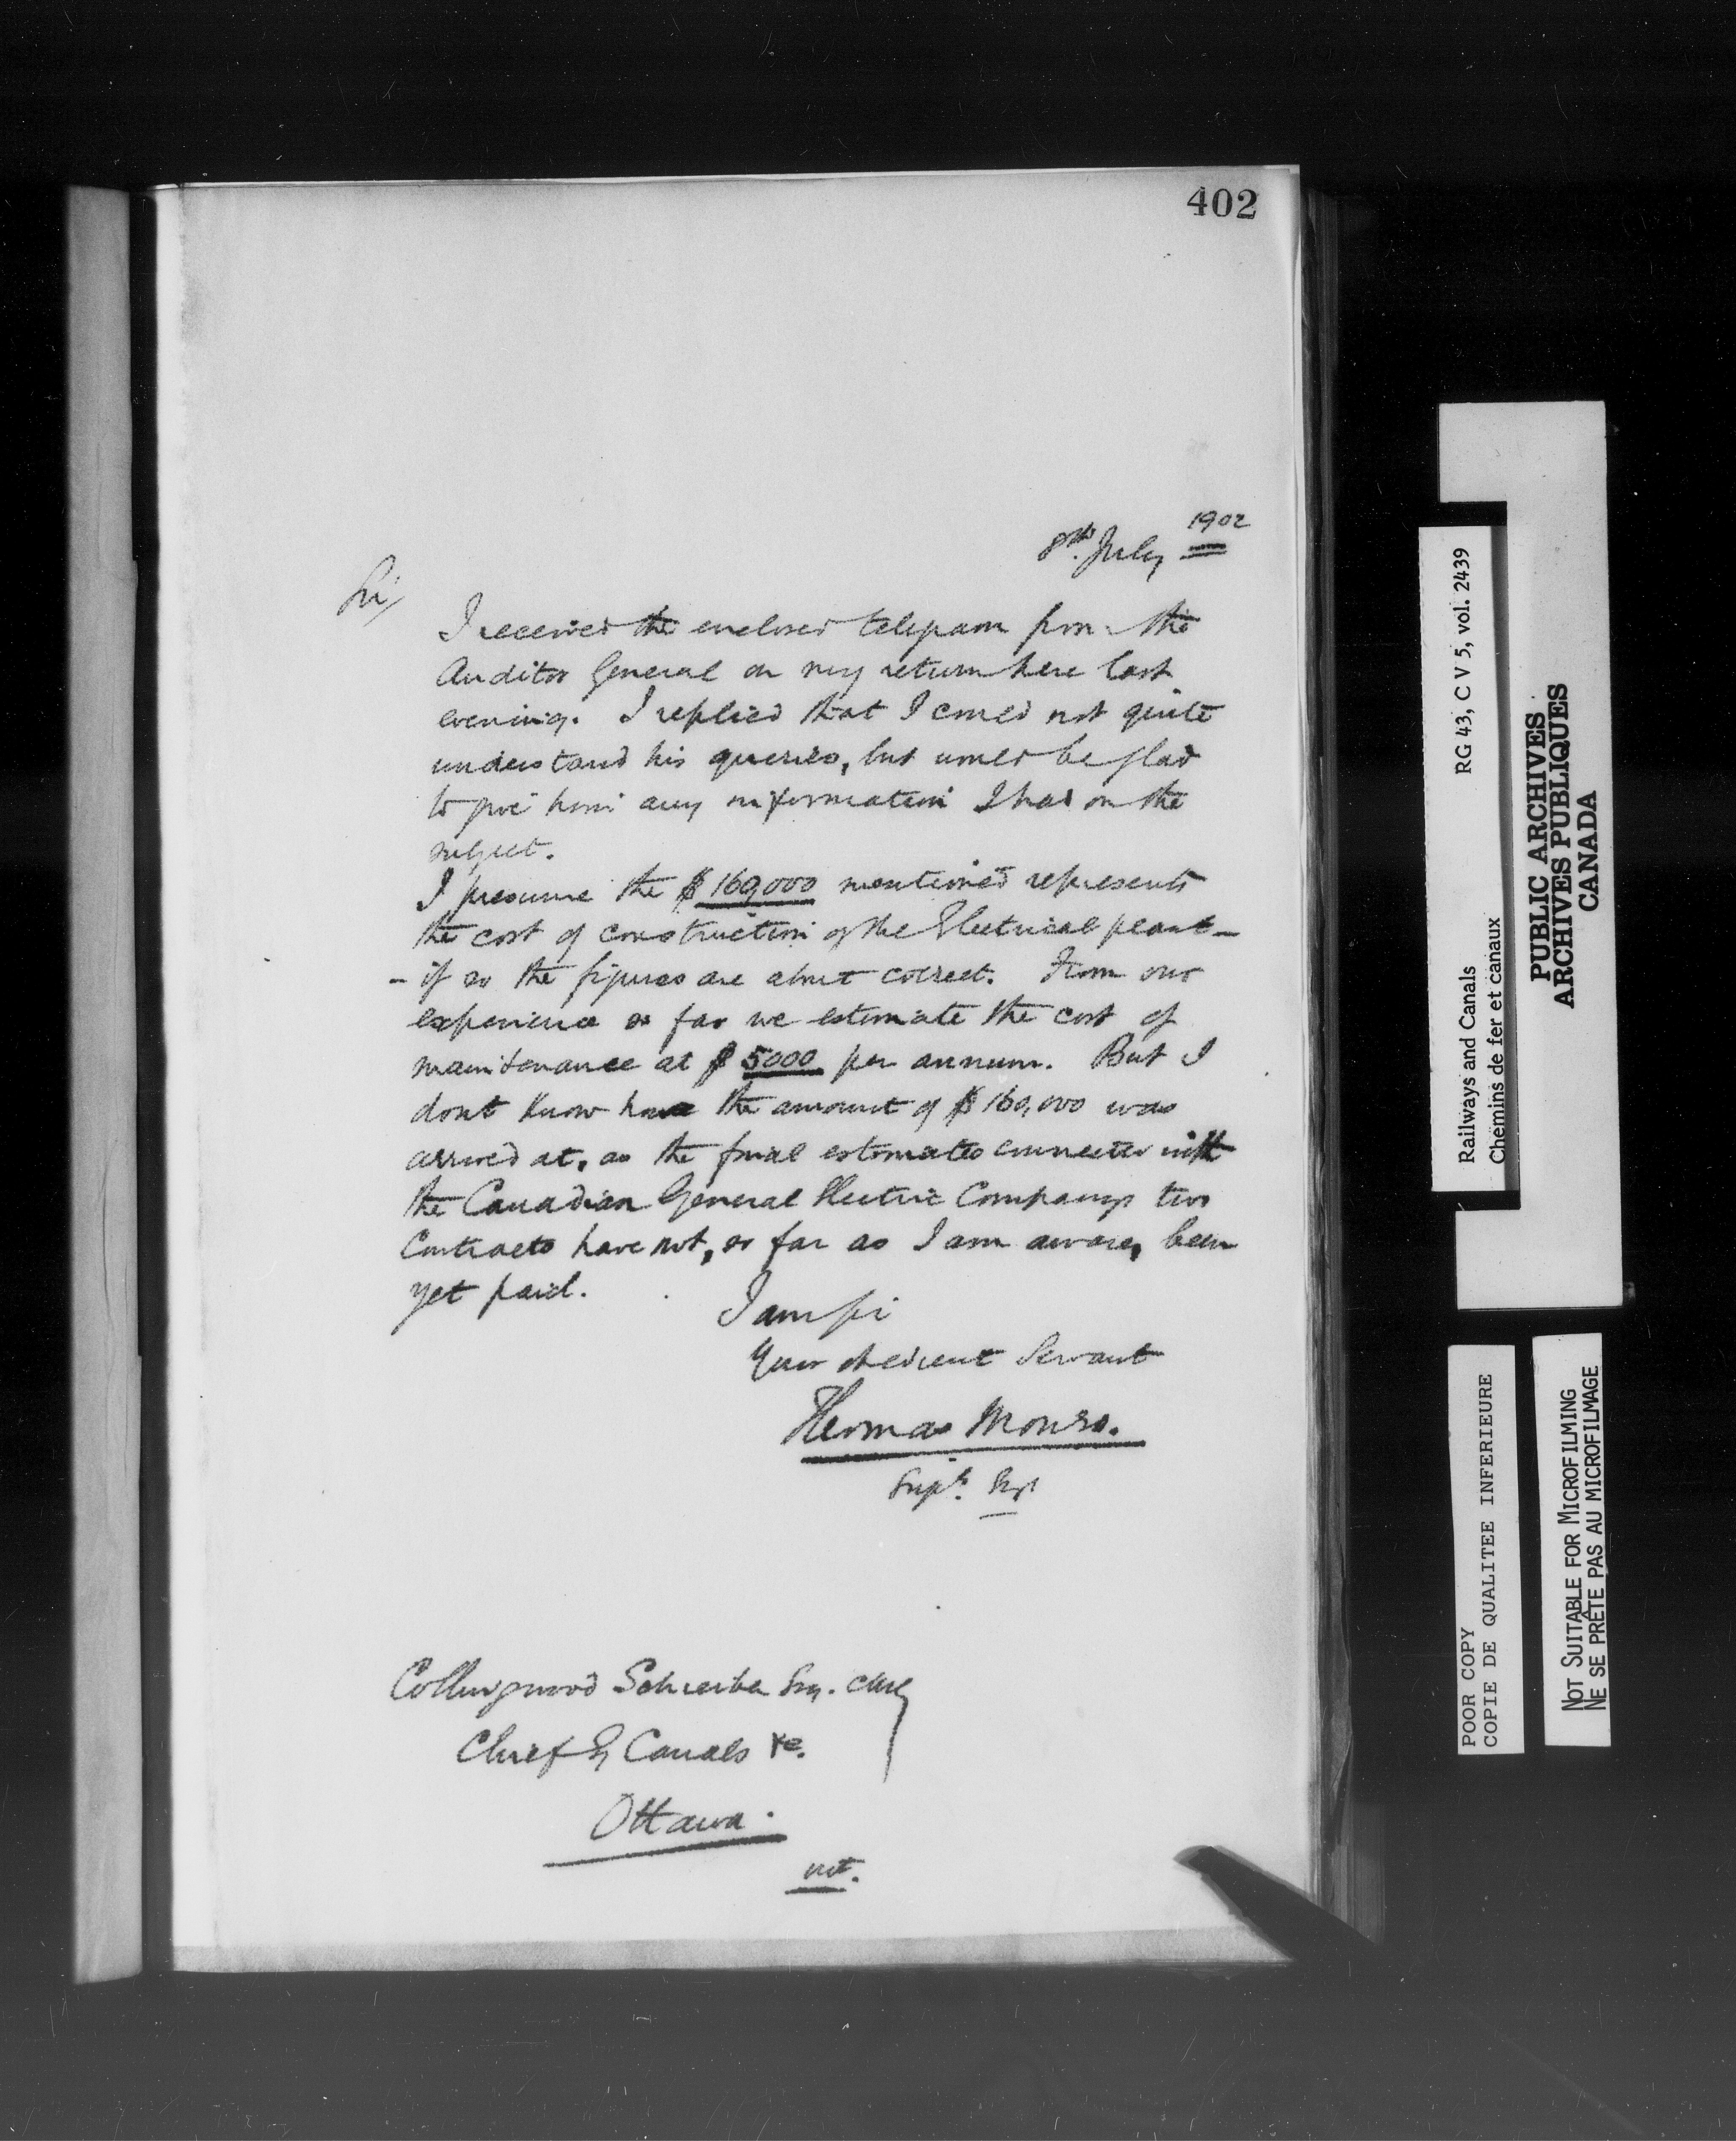 402
8th. July 1902
Sir/
I received the enclosed telegram from the
Auditor General on my return here last
evening. I replied that I could not quite
understand his queries, but would be glad
to give him any information I had on the
subject.
I presume the $160,000 mentioned represents
the cost of construction of the Electrical plant -
- if so the figures are about correct. From our
experience so far we estimate the cost of
maintenance at $5000 per annum. But I
dont know how the amount of $160,000 was
arrived at, as the final estimates connected with
the Canadian General Electric Companys two
Contracts have not, so far as I am aware, been
yet paid.
I am Sir
Your obedient Servant
Thomas Monro.
Supt. Eng.
Collingwood Schreiber Esq. CMG
Chief Eng Canals &c.
Ottawa.
Railways and Canals RG 43, C V 5, vol. 2439
Chemins de fer et canaux
PUBLIC ARCHIVES
ARCHIVES PUBLIQUES
CANADA
POOR COPY
COPIE DE QUALITEE INFERIEURE
NOT SUITABLE FOR MICROFILMING
NE SE PRÊTE PAS AU MICROFILMAGE